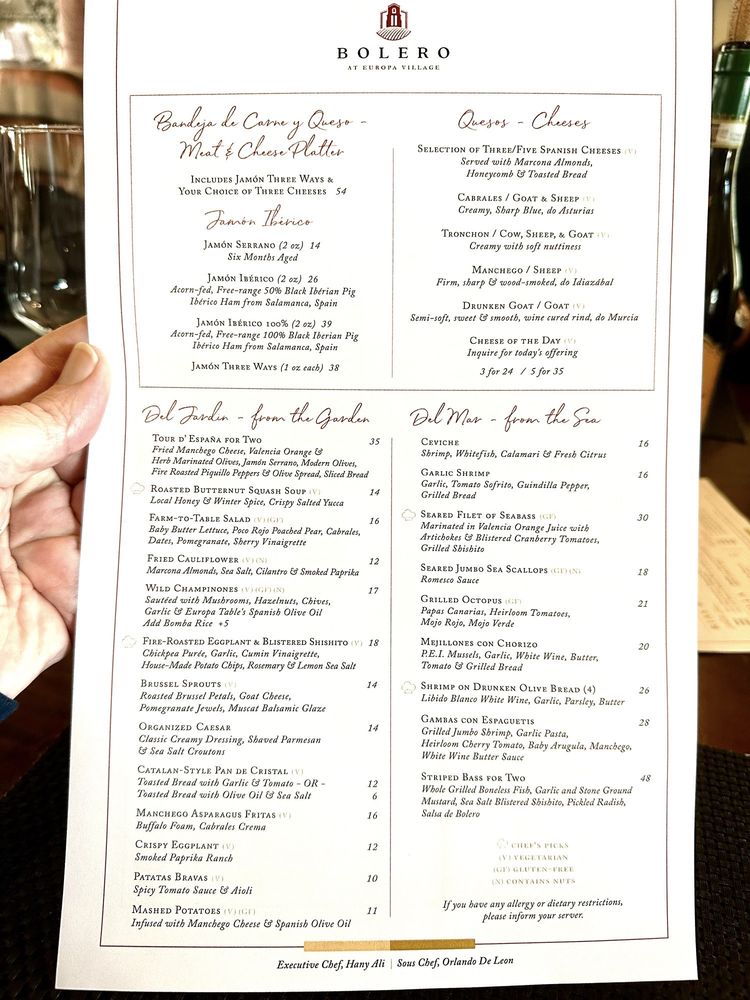 BOLERO
AT EUROPA VILLAGE
Bandeja de Carne y Queso -
Meat & Cheese Platter
Includes Jamón Three Ways &
Your Choice of Three Cheeses 54
Jamón Ibérico
Jamón Serrano (2 oz) 14
Six Months Aged
Jamón Ibérico (2 oz) 26
Acorn-fed, Free-range 50% Black Ibérian Pig
Ibérico Ham from Salamanca, Spain
Jamón Ibérico 100% (2 oz) 39
Acorn-fed, Free-range 100% Black Iberian Pig
Ibérico Ham from Salamanca, Spain
Jamón Three Ways (1 oz each) 38
Quesos - Cheeses
Selection of Three/Five Spanish Cheeses (V)
Served with Marcona Almonds,
Honeycomb & Toasted Bread
Cabrales / Goat & Sheep (V)
Creamy, Sharp Blue, do Asturias
Tronchon / Cow, Sheep, & Goat (V)
Creamy with soft nuttiness
Manchego / Sheep (V)
Firm, sharp & wood-smoked, do Idiazábal
Drunken Goat / Goat (V)
Semi-soft, sweet & smooth, wine cured rind, do Murcia
Cheese of the Day (V)
Inquire for today's offering
3 for 24 / 5 for 35
Del Jardin - from the Garden
Tour d' España for Two 35
Fried Manchego Cheese, Valencia Orange &
Herb Marinated Olives, Jamón Serrano, Modern Olives,
Fire Roasted Piquillo Peppers & Olive Spread, Sliced Bread
Roasted Butternut Squash Soup (V) 14
Local Honey & Winter Spice, Crispy Salted Yucca
Farm-to-Table Salad (V)(GF) 16
Baby Butter Lettuce, Poco Rojo Poached Pear, Cabrales,
Dates, Pomegranate, Sherry Vinaigrette
Fried Cauliflower (V)(N) 12
Marcona Almonds, Sea Salt, Cilantro & Smoked Paprika
Wild Champinones (V)(GF)(N) 17
Sautéed with Mushrooms, Hazelnuts, Chives,
Garlic & Europa Table's Spanish Olive Oil
Add Bomba Rice +5
Fire-Roasted Eggplant & Blistered Shishito (V) 18
Chickpea Purée, Garlic, Cumin Vinaigrette,
House-Made Potato Chips, Rosemary & Lemon Sea Salt
Brussel Sprouts (V) 14
Roasted Brussel Petals, Goat Cheese,
Pomegranate Jewels, Muscat Balsamic Glaze
Organized Caesar 14
Classic Creamy Dressing, Shaved Parmesan
& Sea Salt Croutons
Catalan-Style Pan de Cristal (V)
Toasted Bread with Garlic & Tomato - OR - 12
Toasted Bread with Olive Oil & Sea Salt 6
Manchego Asparagus Fritas (V) 16
Buffalo Foam, Cabrales Crema
Crispy Eggplant (V) 12
Smoked Paprika Ranch
Patatas Bravas (V) 10
Spicy Tomato Sauce & Aioli
Mashed Potatoes (V)(GF) 11
Infused with Manchego Cheese & Spanish Olive Oil
Del Mar - from the Sea
Ceviche 16
Shrimp, Whitefish, Calamari & Fresh Citrus
Garlic Shrimp 16
Garlic, Tomato Sofrito, Guindilla Pepper,
Grilled Bread
Seared Filet of Seabass (GF) 30
Marinated in Valencia Orange Juice with
Artichokes & Blistered Cranberry Tomatoes,
Grilled Shishito
Seared Jumbo Sea Scallops (GF)(N) 18
Romesco Sauce
Grilled Octopus (GF) 21
Papas Canarias, Heirloom Tomatoes,
Mojo Rojo, Mojo Verde
Mejillones con Chorizo 20
P.E.I. Mussels, Garlic, White Wine, Butter,
Tomato & Grilled Bread
Shrimp on Drunken Olive Bread (4) 26
Libido Blanco White Wine, Garlic, Parsley, Butter
Gambas con Espaguetis 28
Grilled Jumbo Shrimp, Garlic Pasta,
Heirloom Cherry Tomato, Baby Arugula, Manchego,
White Wine Butter Sauce
Striped Bass for Two 48
Whole Grilled Boneless Fish, Garlic and Stone Ground
Mustard, Sea Salt Blistered Shishito, Pickled Radish,
Salsa de Bolero
CHEF'S PICKS
(V) VEGETARIAN
(GF) GLUTEN-FREE
(N) CONTAINS NUTS
If you have any allergy or dietary restrictions,
please inform your server.
Executive Chef, Hany Ali | Sous Chef, Orlando De Leon